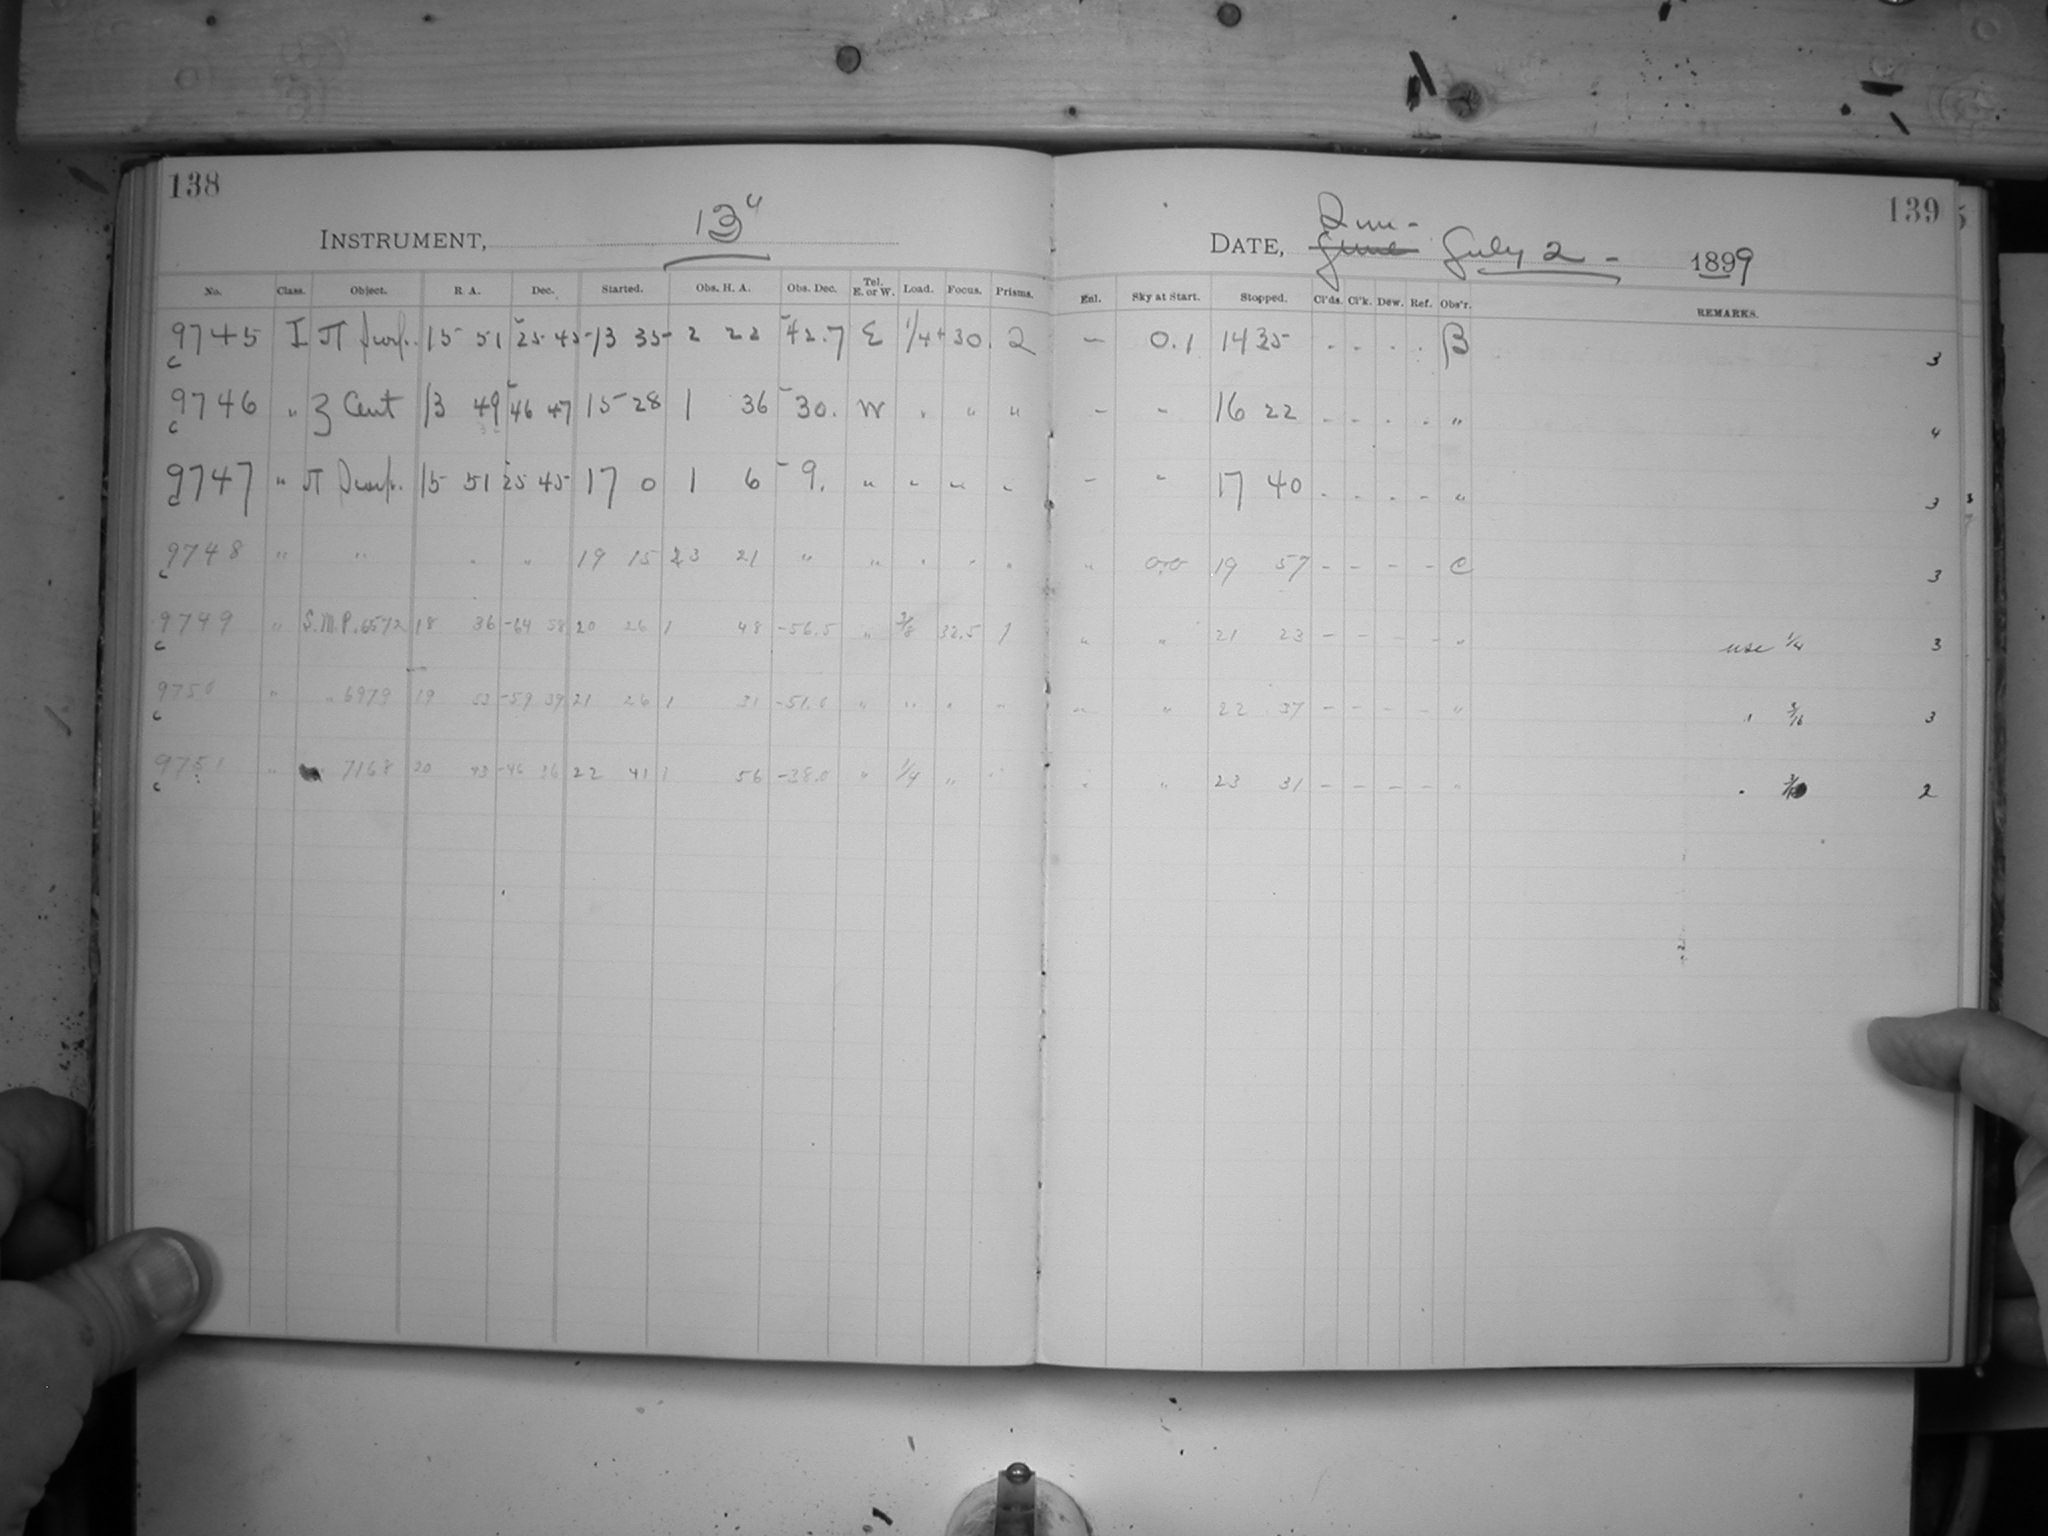 138
INSTRUMENT, 13"
No. Class. Object. R. A. Dec. Started. Obs. H. A. Obs. Dec. Tel. E. or W. Load. Focus. Prisms.
9745 I π Scorp. 15 51 -25 45 13 35 2 22 -42.7 E 1/4 +30. 2
c
9746 " 3 Cent 13 49 -46 47 15 28 1 36 -30. W " " "
c
9747 " π Scorp. 15 51 25 45 17 0 1 6 -9. " " " "
c
9748 " " " " 19 15 23 21 " " " " "
c
9749 " S.M.P. 6572 18 36 -64 58 20 26 1 48 -56.5 " 3/8 32.5 1
c
9750 " " 6979 19 53 -59 39 21 26 1 31 -51.0 " " " "
c
9751 " 7168 20 43 -46 36 22 41 1 56 -38.0 " 1/4 " "
c
139
DATE, July 2 - 1899
Enl. Sky at Start. Stopped. Cl'ds. Cl'k. Dew. Ref. Obs'r. REMARKS.
- 0.1 14 35 - - - - B 3
- - 16 22 - - - - " 4
- " 17 40 - - - - " 3
" 0.0 19 57 - - - - C 3
" " 21 23 - - - - " use 1/4 3
" " 22 37 - - - - " " 3/16 3
" " 23 31 - - - - " " 2